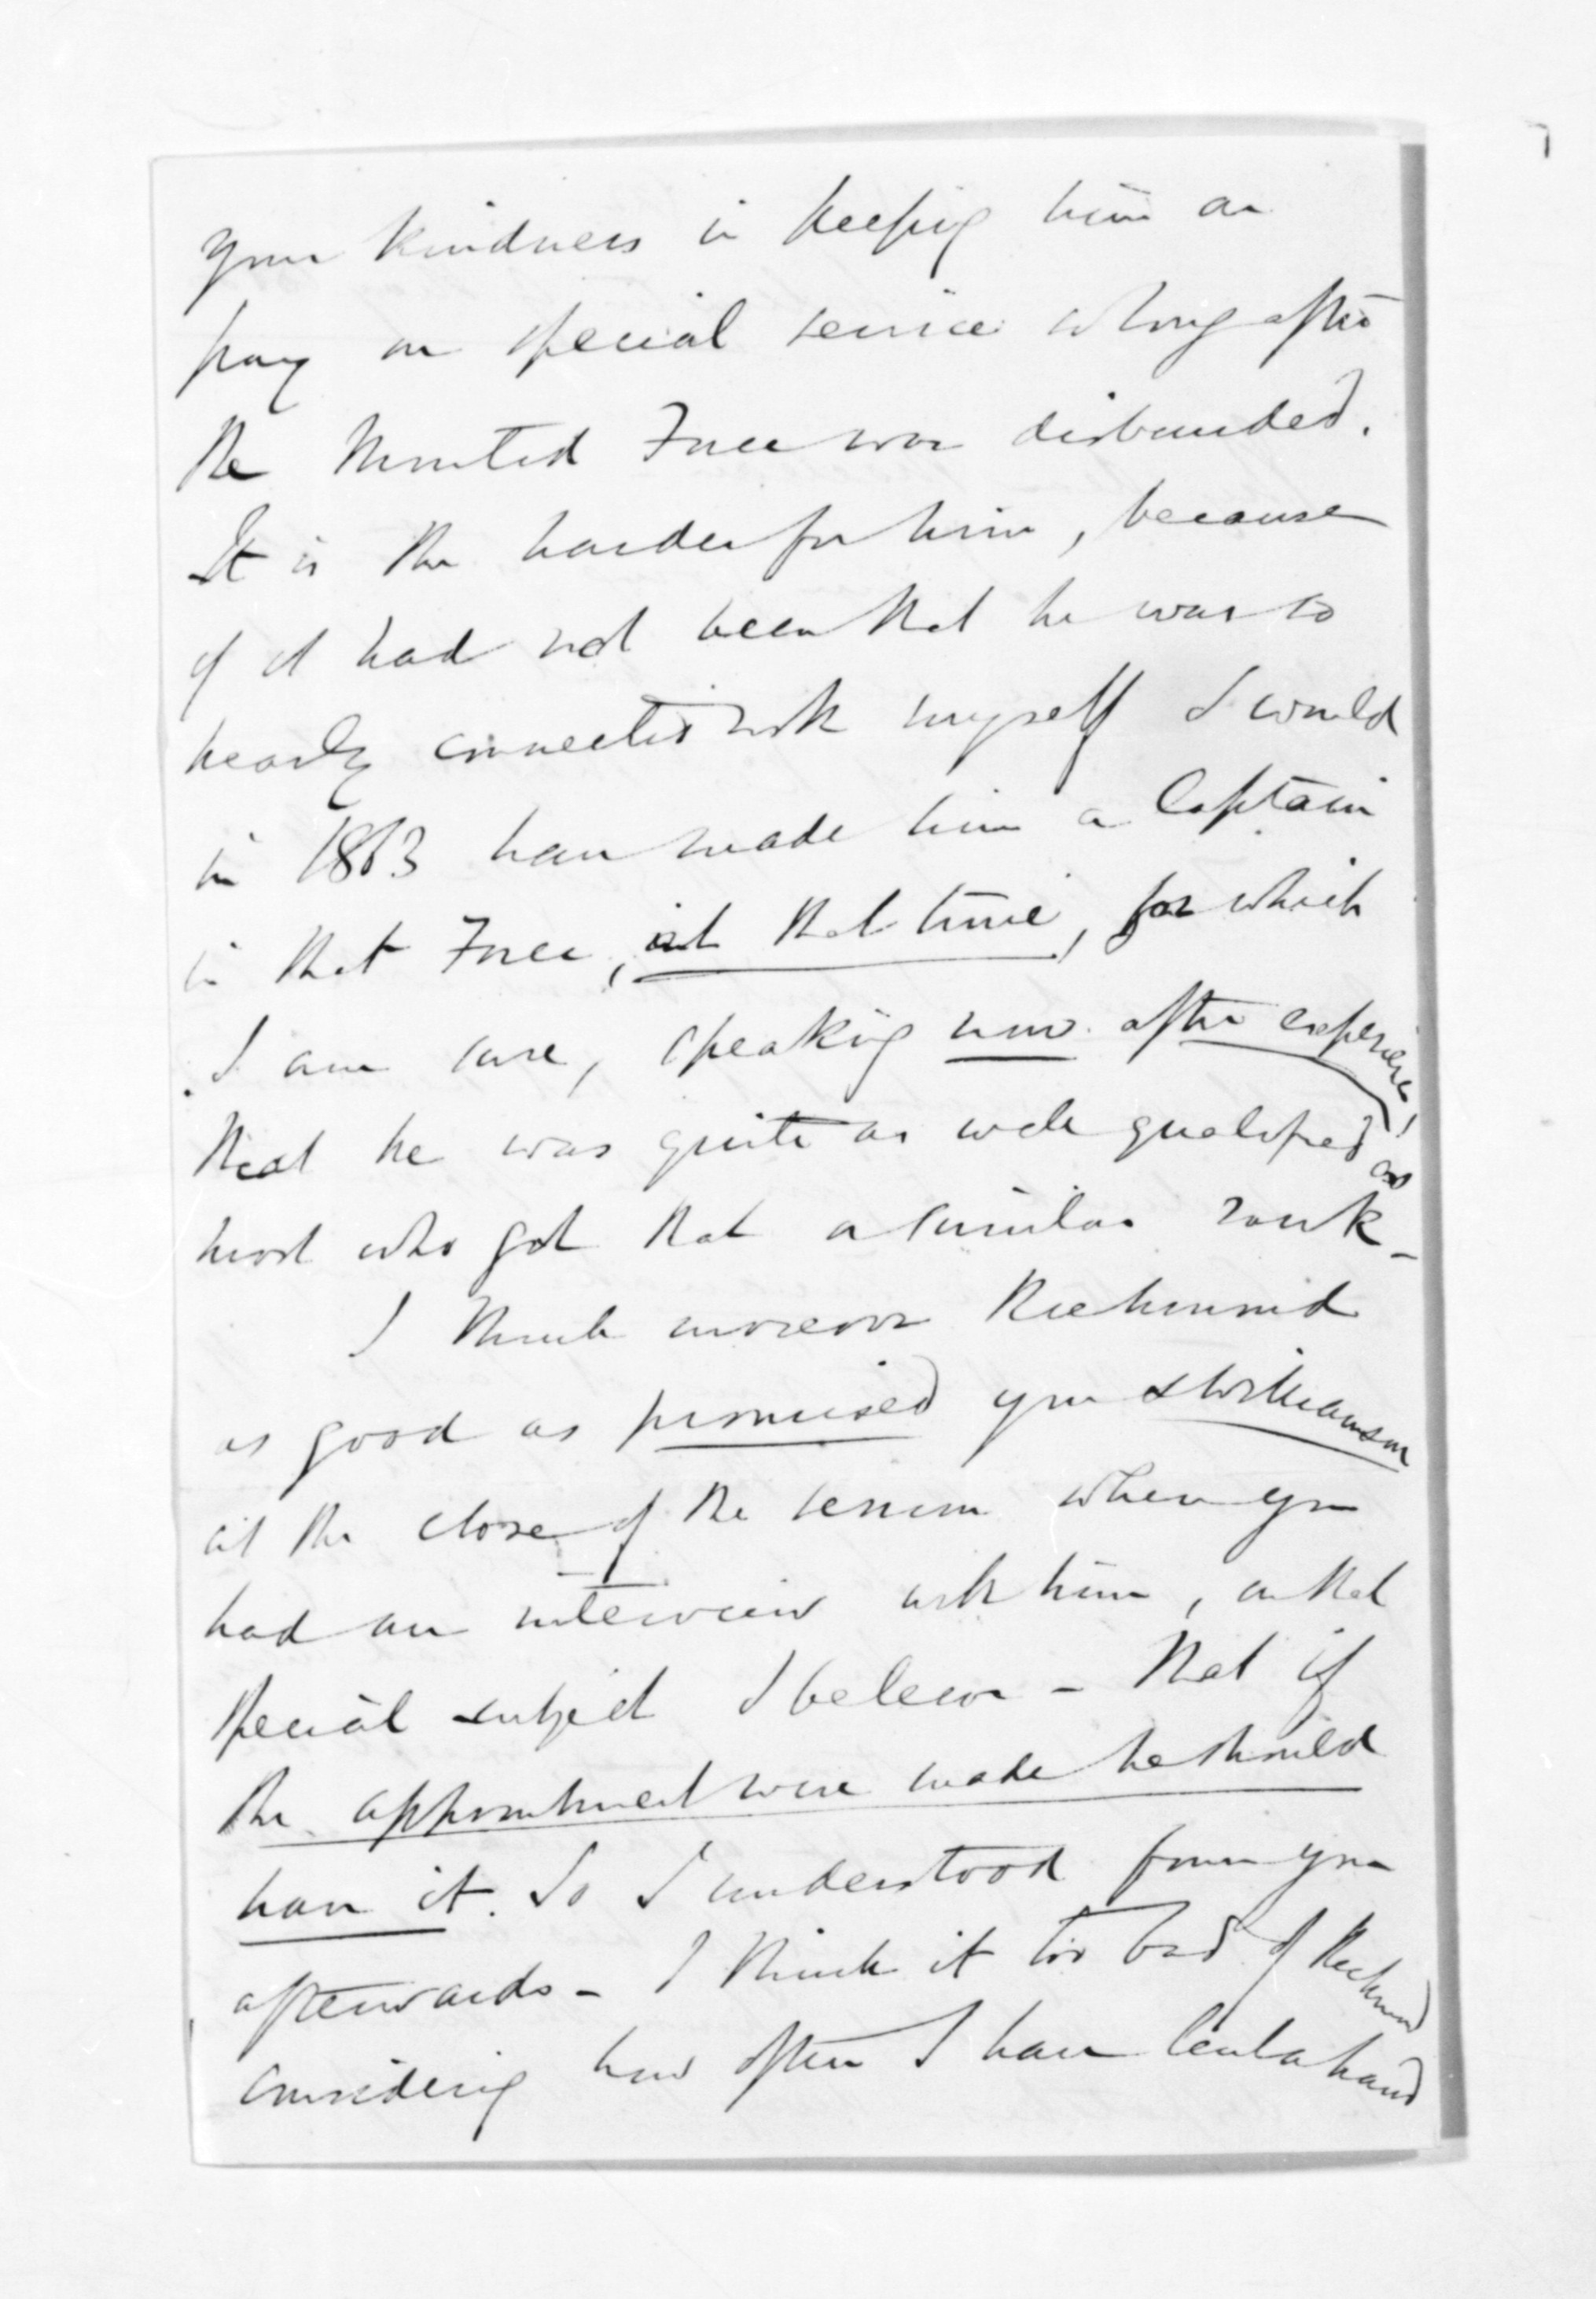 your kindness in keeping him on
pay on special service so long after
the Mounted Force was disbanded.
It is the harder for him, because
if it had not been that he was so
nearly connected with myself I would
in 1863 have made him a Captain
in that Force, at that time, for which
I am sure, speaking now after experience,
that he was quite as well qualified as
most who got that a similar rank -
I think moreover Richmond
as good as promised you & Williamson
at the close of the session when you
had an interview with him, on that
special subject I believe - that if
the appointment were made he should
have it. So I understood from you
afterwards - I think it too bad of Richmond
considering how often I have lent a hand